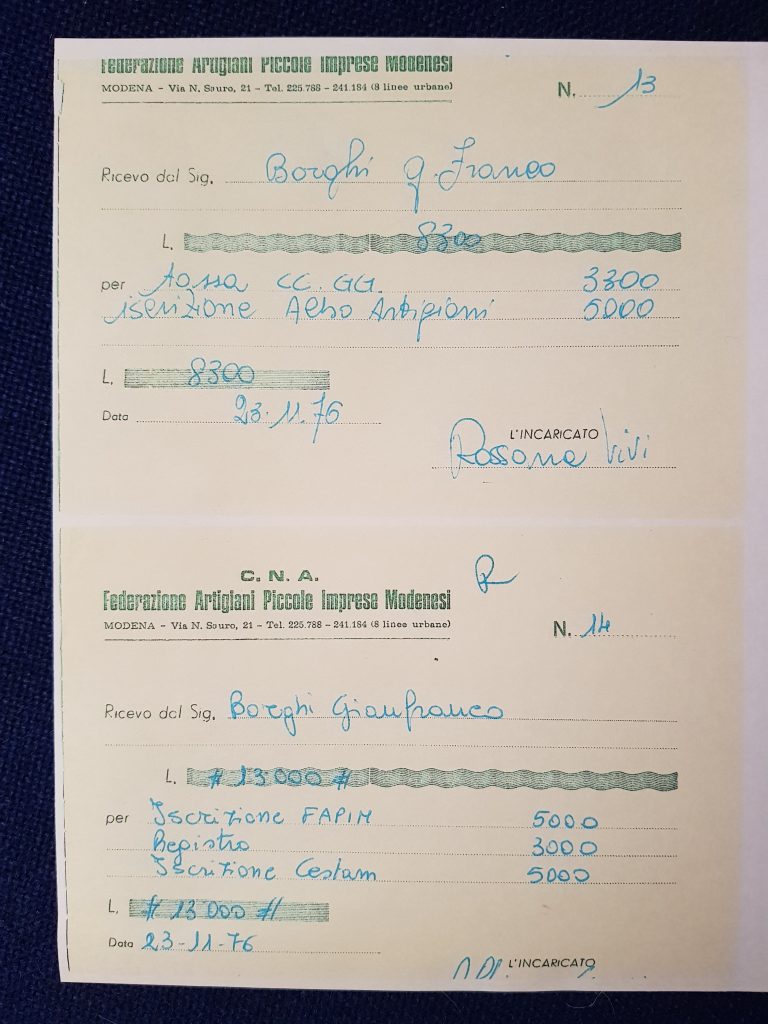 Federazione Artigiani Piccole Imprese Modenesi
MODENA - Via N. Sauro, 21 - Tel. 225.788 - 241.184 (8 linee urbane)
N. 13
Ricevo dal Sig. Borghi G. Franco
L. 8300
per Tassa CC. GG. 3300
iscrizione Albo Artigiani 5000
L. 8300
Data 23.11.76
L'INCARICATO
Rossana Vivi
C. N. A.
Federazione Artigiani Piccole Imprese Modenesi
MODENA - Via N. Sauro, 21 - Tel. 225.788 - 241.184 (8 linee urbane)
N. 14
Ricevo dal Sig. Borghi Gianfranco
L. # 13000 #
per Iscrizione FAPIM 5000
Registro 3000
Iscrizione Cestam 5000
L. # 13000 #
Data 23-11-76
L'INCARICATO